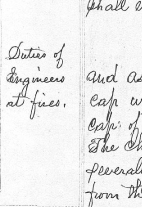 shall e
Duties of
Engineers
at fires.
and as
cap w
cap: of
The Ch
severall
from th